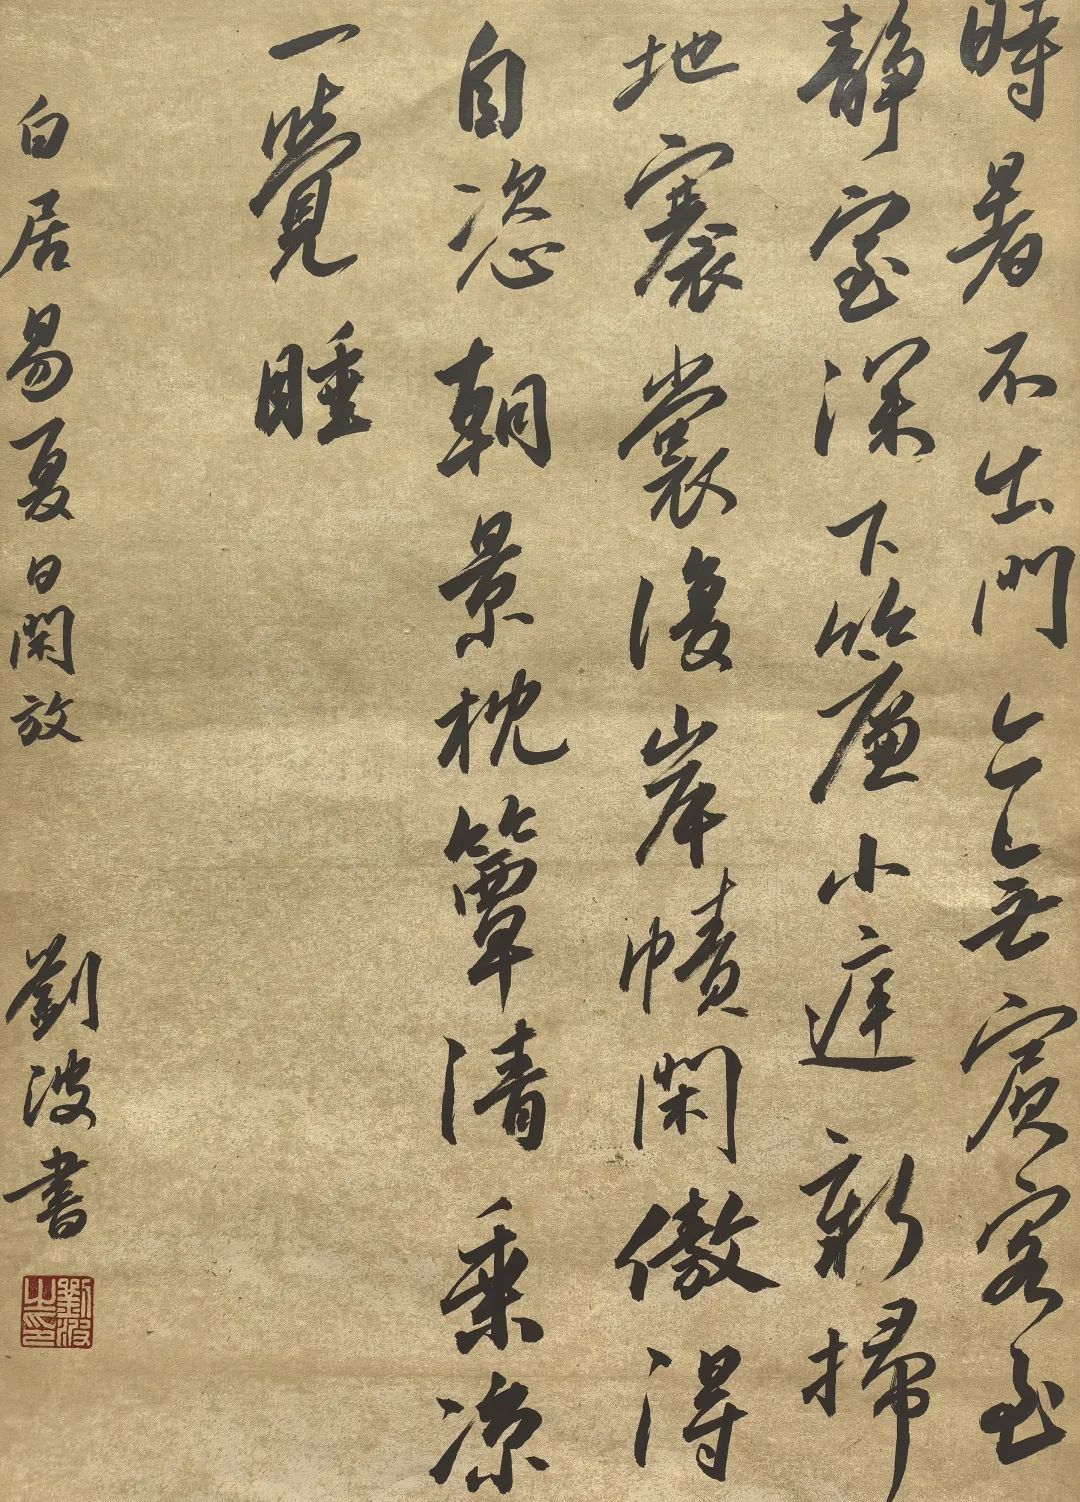 時暑不出門亦無賓客至
靜室深下簾小庭新掃
地褰裳復岸幘閑傲得
自恣朝景枕簟清乘凉
一覺睡
白居易夏日閑放 劉波書
劉波之印